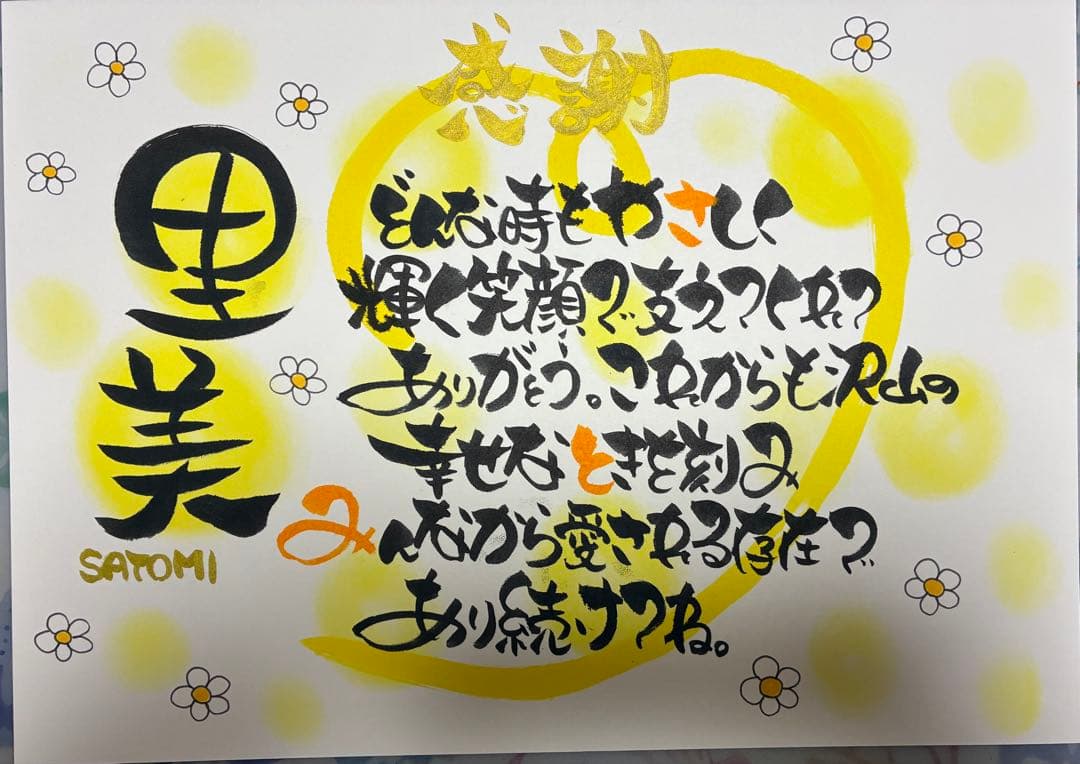 感謝
里美
SATOMI
どんな時もやさしく
輝く笑顔で支えてくれて
ありがとう。これからも沢山の
幸せなときを刻み
みんなから愛される存在で
あり続けてね。